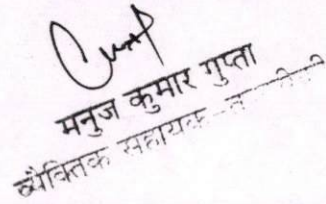 मनुज कुमार गुप्ता
वैयक्तिक सहायक